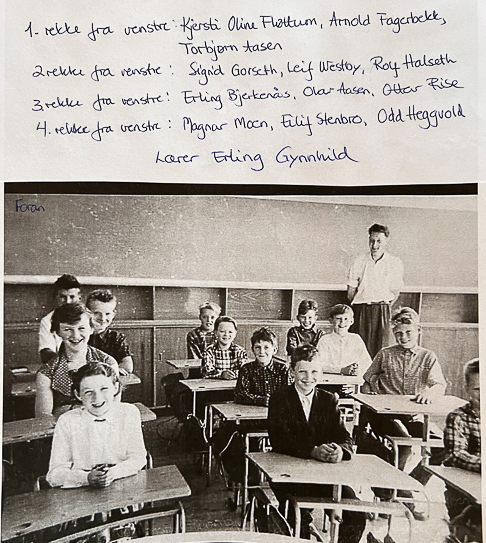 1. rekke fra venstre: Kjersti Oline Fløttum, Arnold Fagerbekk,
Torbjørn Aasen
2 rekke fra venstre: Sigrid Gorseth, Leif Westby, Roy Halseth
3 rekke fra venstre: Erling Bjerkenås, Olav Aasen, Ottar Rise
4. rekke fra venstre: Magnar Moen, Eilif Stenbro, Odd Heggvold
Lærer Erling Gynnhild
Foran